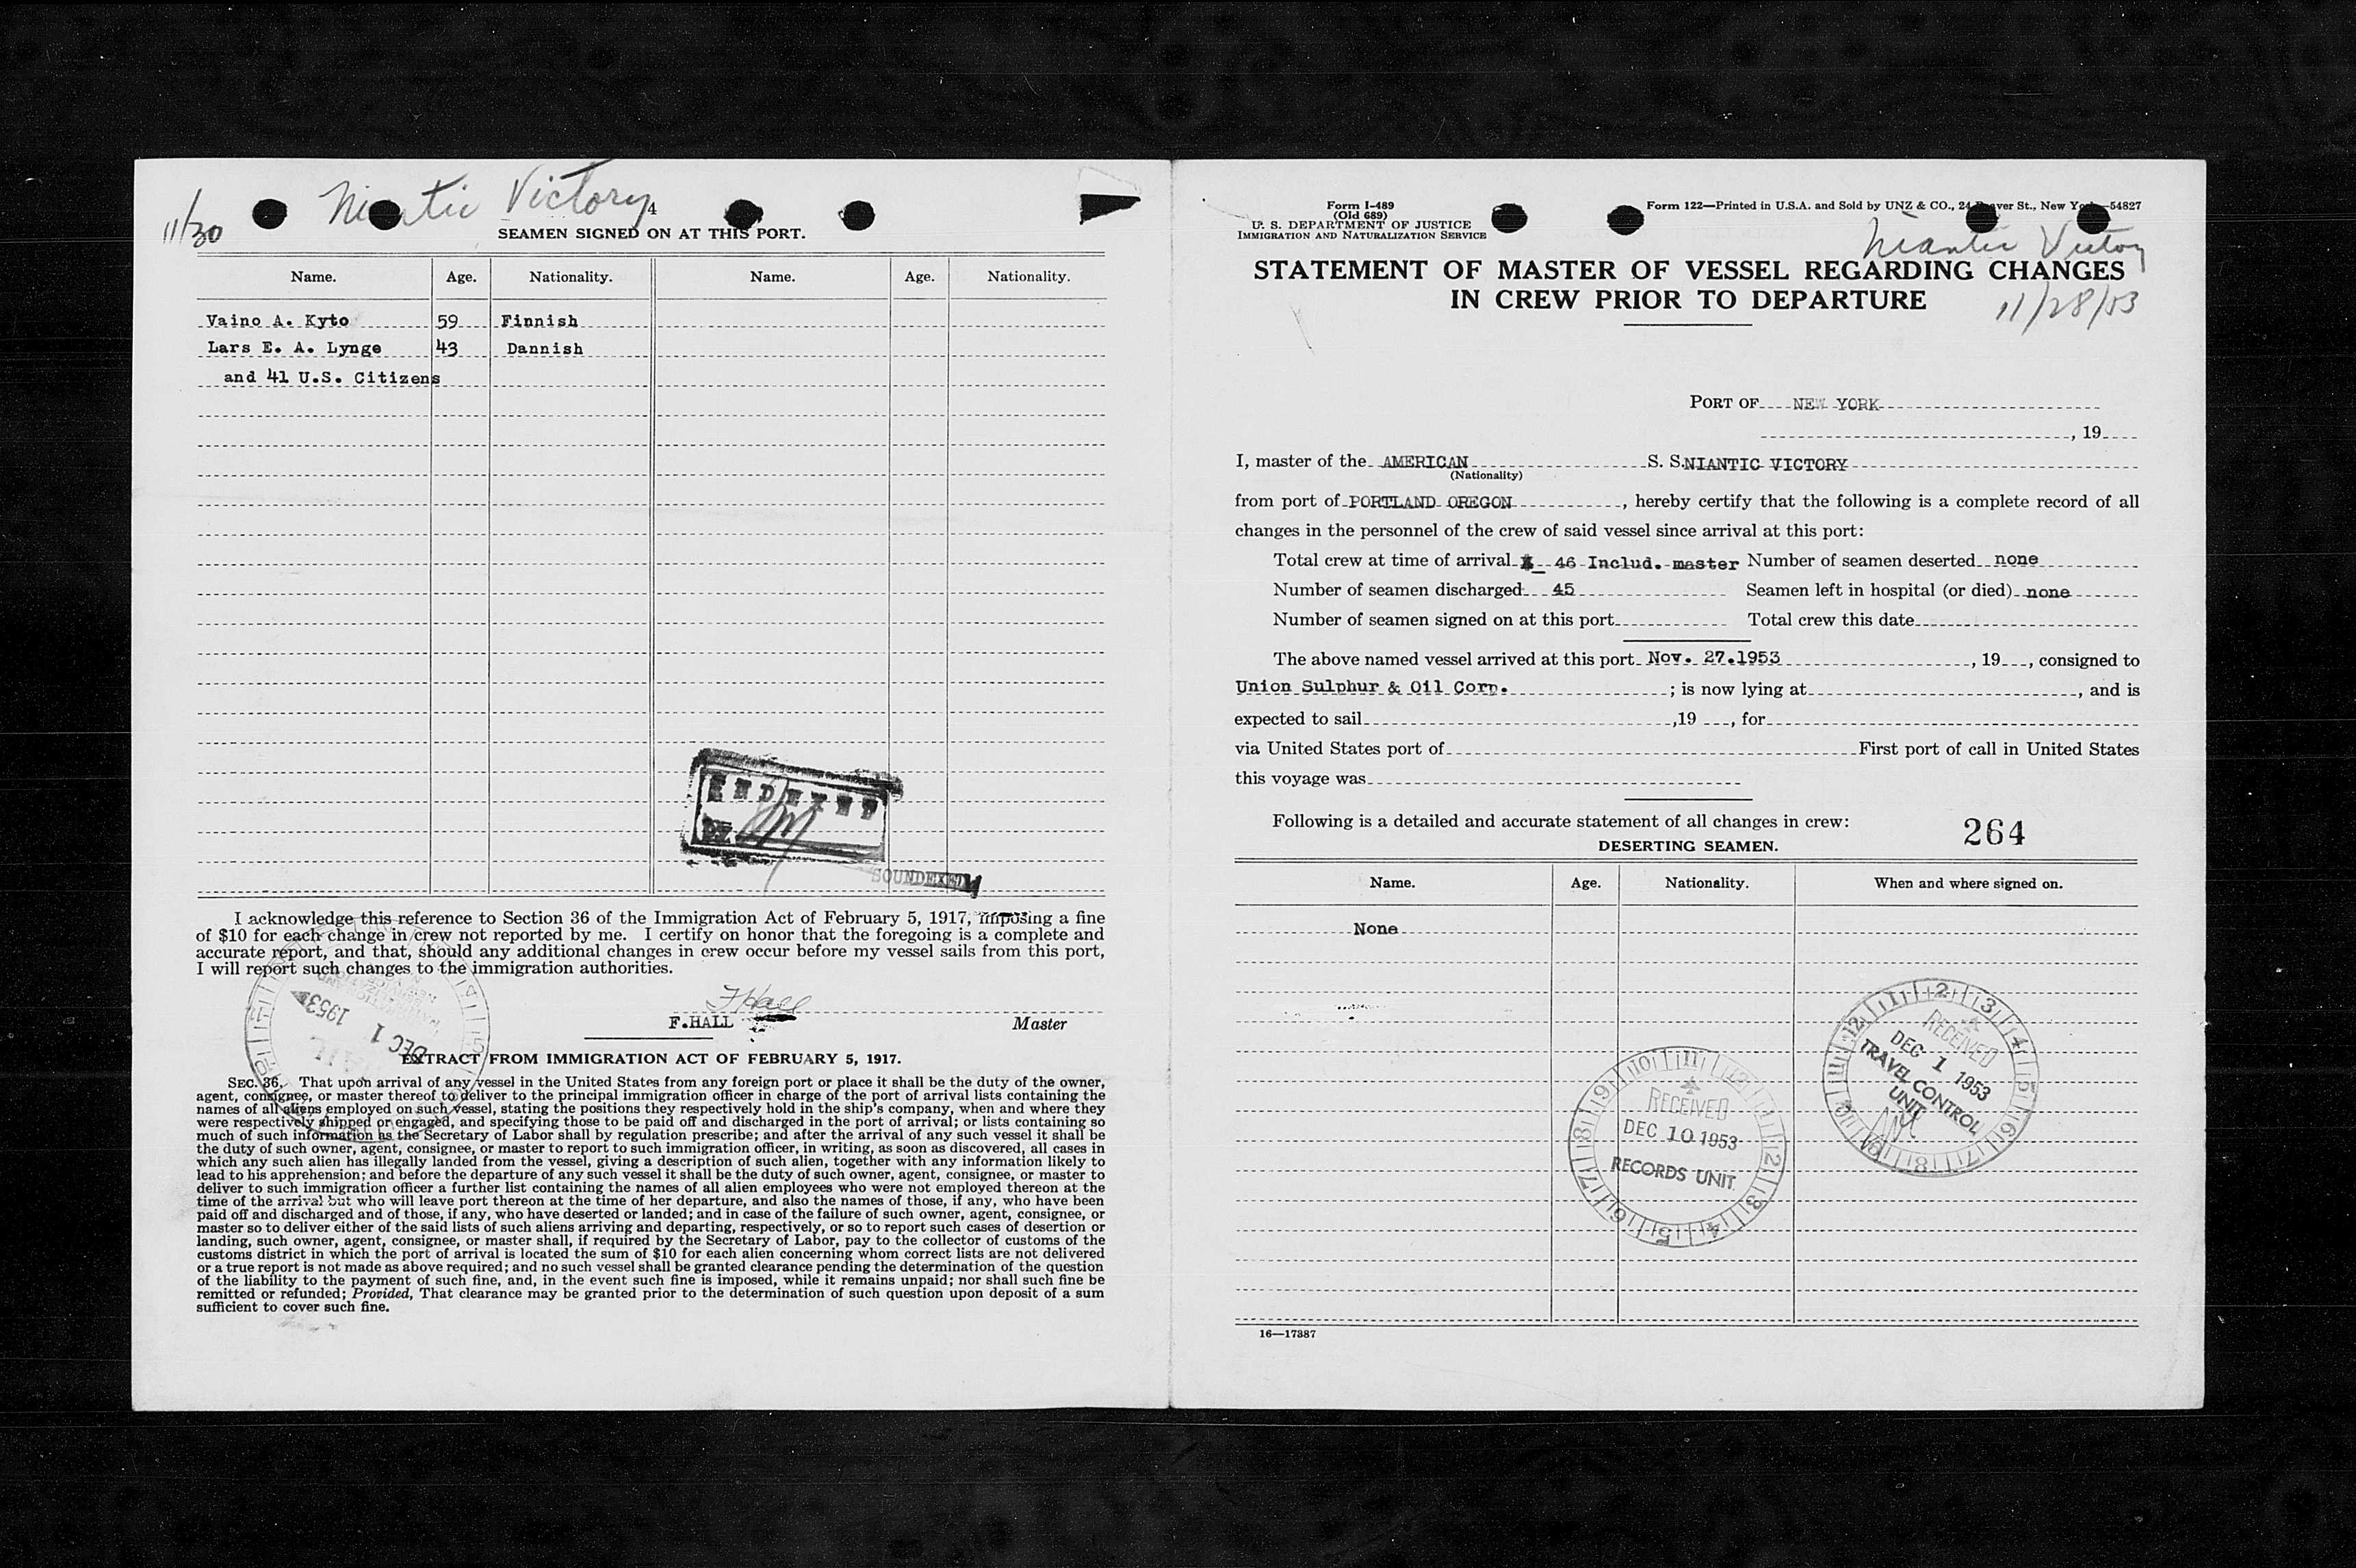 11/30
Niantic Victory
4
SEAMEN SIGNED ON AT THIS PORT.
Name. Age. Nationality. Name. Age. Nationality.
Vaino A. Kyto 59 Finnish
Lars E. A. Lynge 43 Dannish
and 41 U.S. Citizens
INDEXED
BY
SOUNDEXED
I acknowledge this reference to Section 36 of the Immigration Act of February 5, 1917, imposing a fine
of $10 for each change in crew not reported by me. I certify on honor that the foregoing is a complete and
accurate report, and that, should any additional changes in crew occur before my vessel sails from this port,
I will report such changes to the immigration authorities.
F Hall
F.HALL Master
DEC 1 1953
EXTRACT FROM IMMIGRATION ACT OF FEBRUARY 5, 1917.
SEC. 36. That upon arrival of any vessel in the United States from any foreign port or place it shall be the duty of the owner,
agent, consignee, or master thereof to deliver to the principal immigration officer in charge of the port of arrival lists containing the
names of all aliens employed on such vessel, stating the positions they respectively hold in the ship's company, when and where they
were respectively shipped or engaged, and specifying those to be paid off and discharged in the port of arrival; or lists containing so
much of such information as the Secretary of Labor shall by regulation prescribe; and after the arrival of any such vessel it shall be
the duty of such owner, agent, consignee, or master to report to such immigration officer, in writing, as soon as discovered, all cases in
which any such alien has illegally landed from the vessel, giving a description of such alien, together with any information likely to
lead to his apprehension; and before the departure of any such vessel it shall be the duty of such owner, agent, consignee, or master to
deliver to such immigration officer a further list containing the names of all alien employees who were not employed thereon at the
time of the arrival but who will leave port thereon at the time of her departure, and also the names of those, if any, who have been
paid off and discharged and of those, if any, who have deserted or landed; and in case of the failure of such owner, agent, consignee, or
master so to deliver either of the said lists of such aliens arriving and departing, respectively, or so to report such cases of desertion or
landing, such owner, agent, consignee, or master shall, if required by the Secretary of Labor, pay to the collector of customs of the
customs district in which the port of arrival is located the sum of $10 for each alien concerning whom correct lists are not delivered
or a true report is not made as above required; and no such vessel shall be granted clearance pending the determination of the question
of the liability to the payment of such fine, and, in the event such fine is imposed, while it remains unpaid; nor shall such fine be
remitted or refunded; Provided, That clearance may be granted prior to the determination of such question upon deposit of a sum
sufficient to cover such fine.
Form I-489
(Old 689)
U. S. DEPARTMENT OF JUSTICE
IMMIGRATION AND NATURALIZATION SERVICE
Form 122—Printed in U.S.A. and Sold by UNZ & CO., 24 Beaver St., New York—54827
Niantic Victory
STATEMENT OF MASTER OF VESSEL REGARDING CHANGES
IN CREW PRIOR TO DEPARTURE
11/28/53
PORT OF NEW YORK
, 19
I, master of the AMERICAN S. S. NIANTIC VICTORY
(Nationality)
from port of PORTLAND OREGON , hereby certify that the following is a complete record of all
changes in the personnel of the crew of said vessel since arrival at this port:
Total crew at time of arrival 46 Includ. master Number of seamen deserted none
Number of seamen discharged 45 Seamen left in hospital (or died) none
Number of seamen signed on at this port Total crew this date
The above named vessel arrived at this port Nov. 27.1953 , 19 , consigned to
Union Sulphur & Oil Corp. ; is now lying at , and is
expected to sail ,19 , for
via United States port of First port of call in United States
this voyage was
Following is a detailed and accurate statement of all changes in crew:
264
DESERTING SEAMEN.
Name. Age. Nationality. When and where signed on.
None
RECEIVED
DEC 1 1953
TRAVEL CONTROL
UNIT
RECEIVED
DEC 10 1953
RECORDS UNIT
16—17387